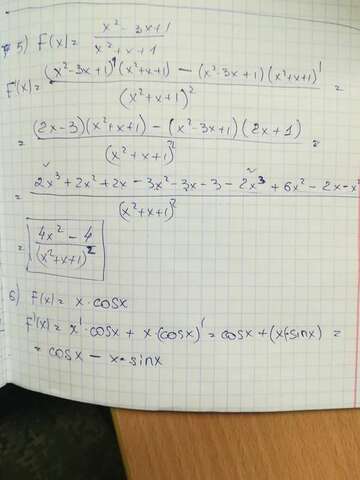 5) F(x) = (x² - 3x + 1) / (x² + x + 1)
F'(x) = ((x² - 3x + 1)' (x² + x + 1) - (x² - 3x + 1)(x² + x + 1)') / (x² + x + 1)² =
= ((2x - 3)(x² + x + 1) - (x² - 3x + 1)(2x + 1)) / (x² + x + 1)² =
= (2x³ + 2x² + 2x - 3x² - 3x - 3 - 2x³ + 6x² - 2x - x²) / (x² + x + 1)²
= (4x² - 4) / (x² + x + 1)²
6) F(x) = x · cosx
F'(x) = x' · cosx + x · (cosx)' = cosx + (x(-sinx) =
= cosx - x · sinx